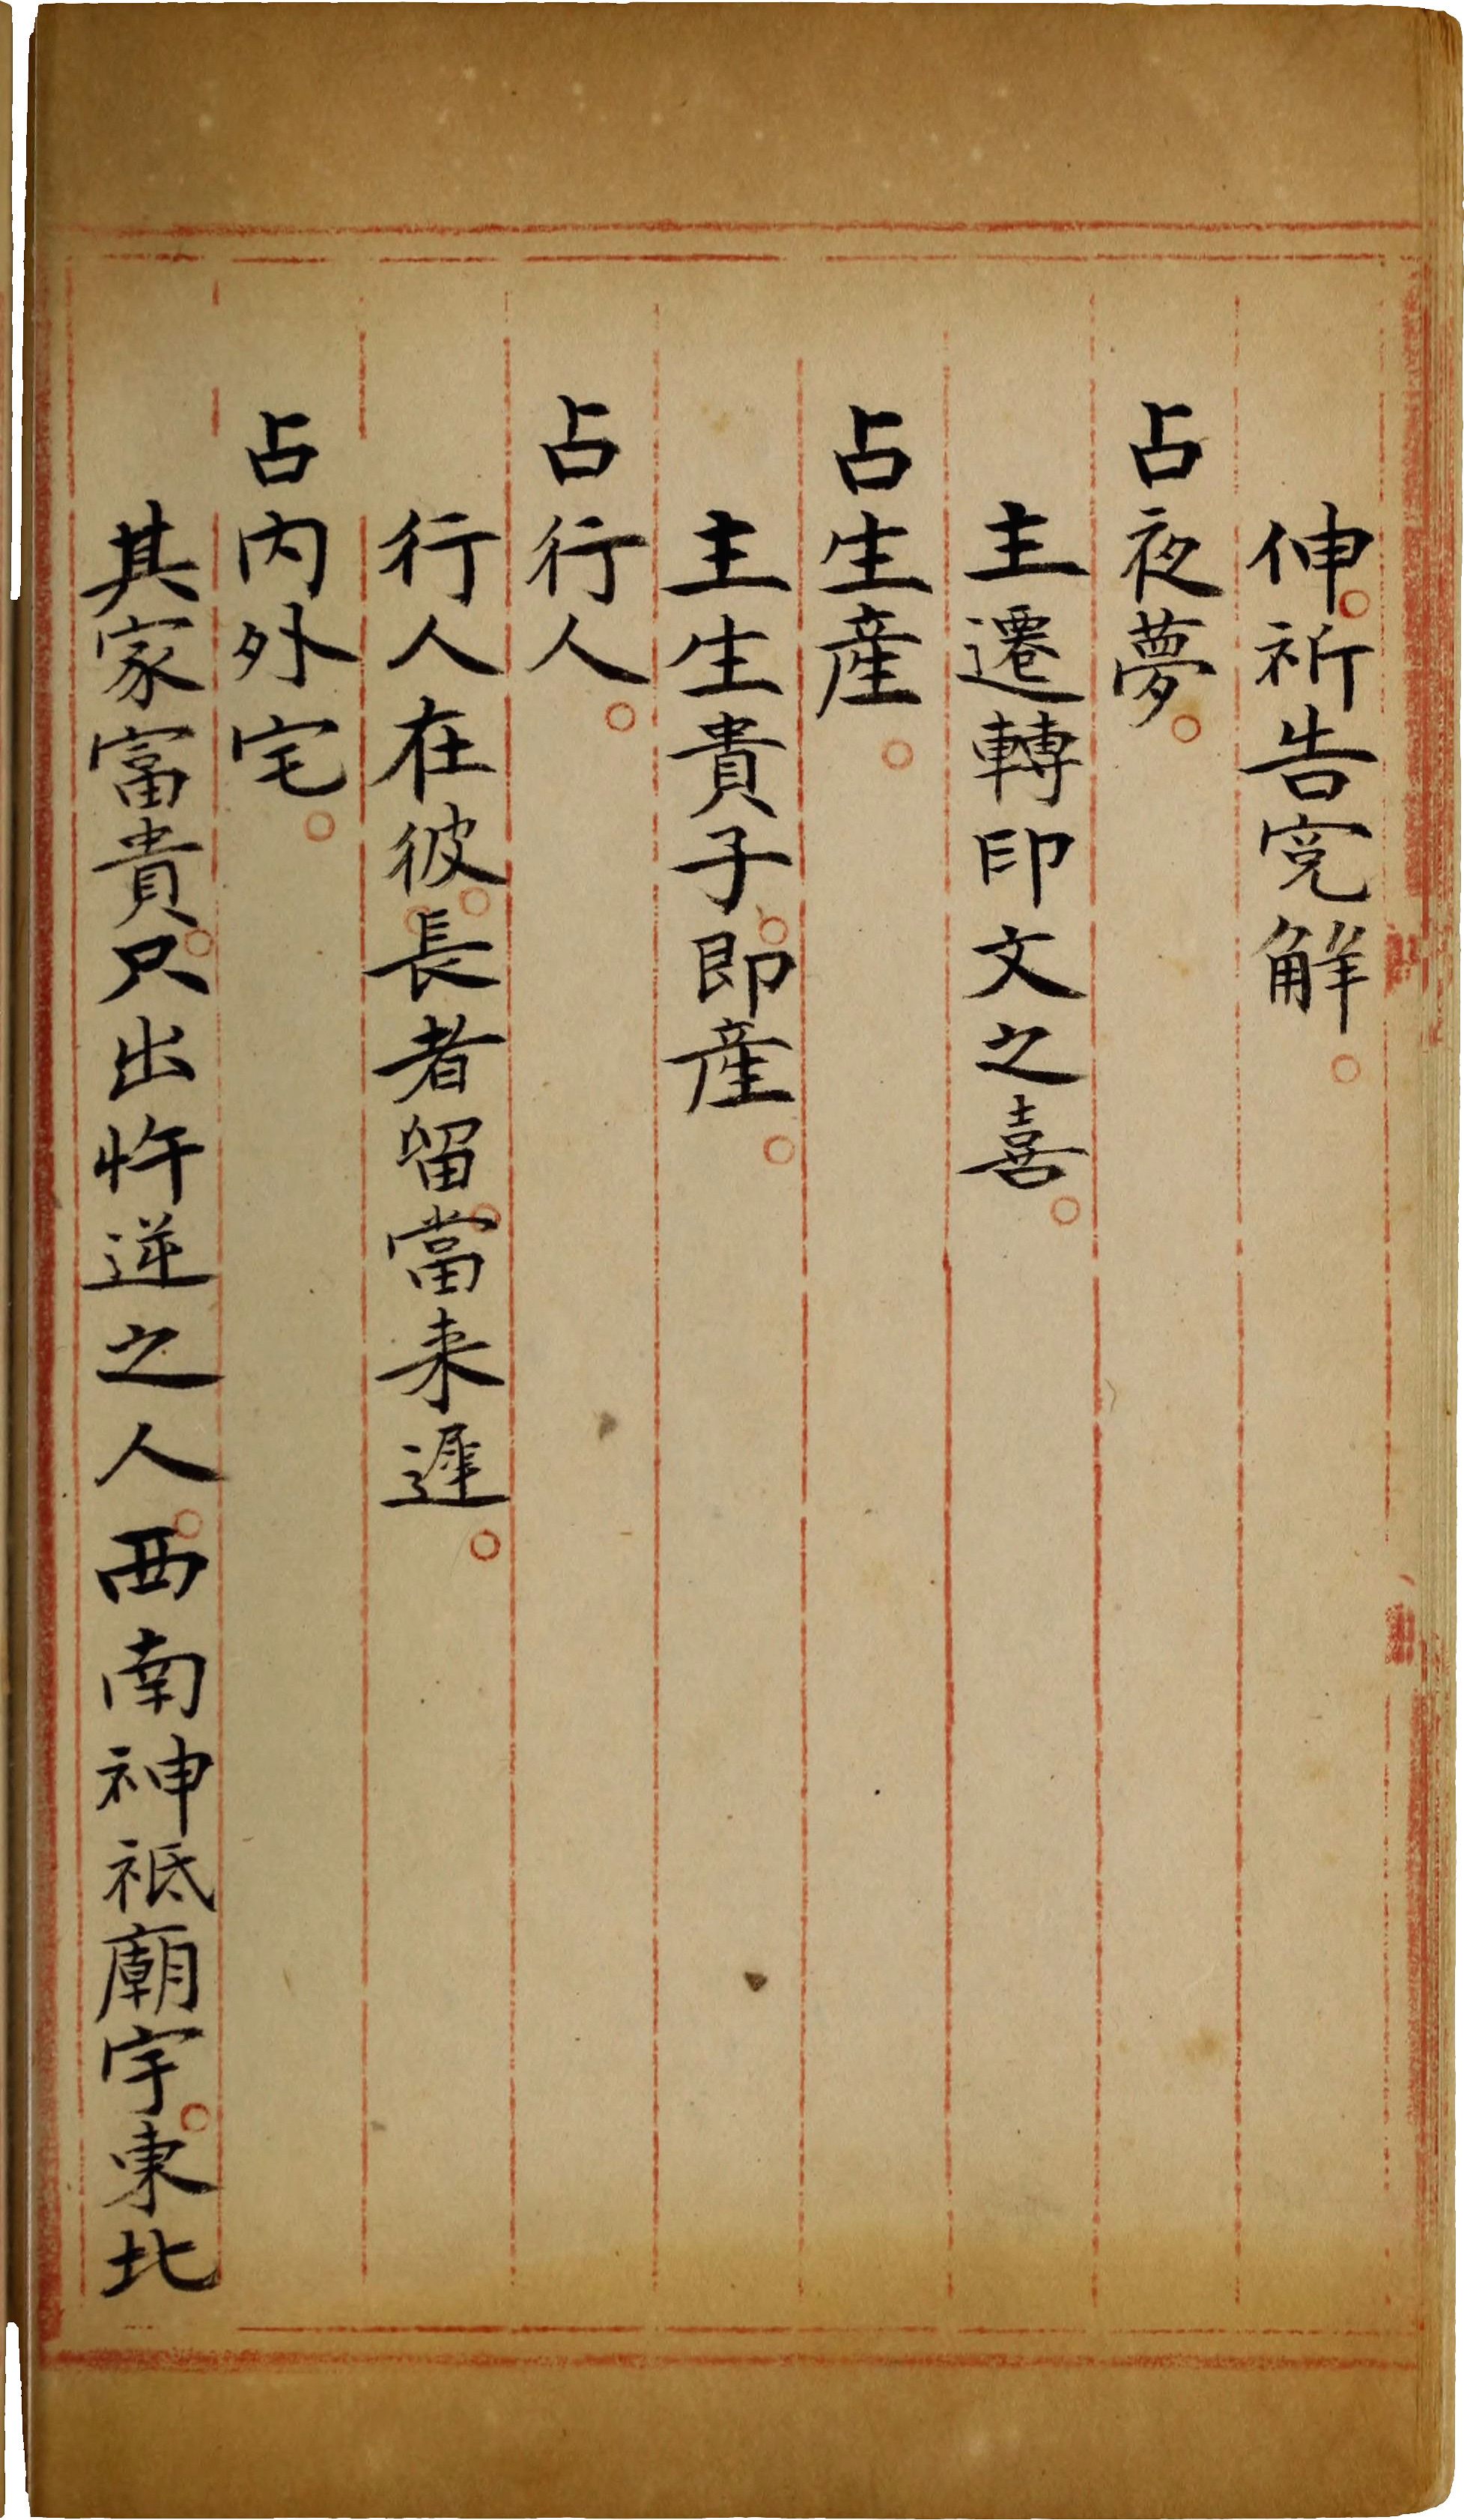 伸祈告寃觧
占夜夢
主遷轉印文之喜
占生産
主生貴子即産
占行人
行人在彼長者留當来遲
占内外宅
其家富貴只出忤逆之人西南神祇廟宇東北